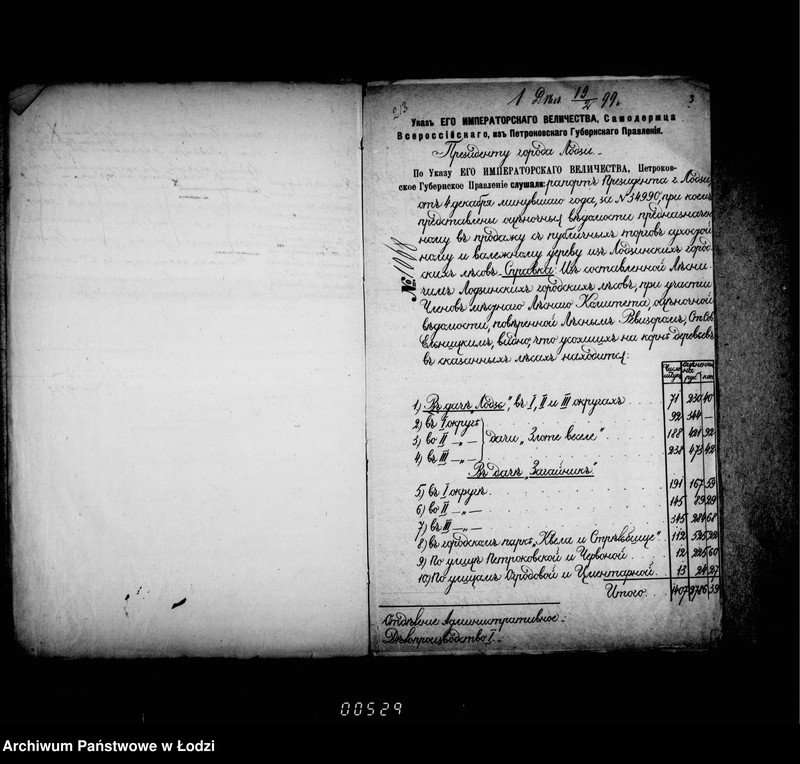 213
1 Дѣл 19/2 99 г.
3
Указъ ЕГО ИМПЕРАТОРСКАГО ВЕЛИЧЕСТВА, Самодержца
Всероссійскаго, изъ Петроковскаго Губернскаго Правленія.
Президенту города Лодзи.
По Указу ЕГО ИМПЕРАТОРСКАГО ВЕЛИЧЕСТВА, Петроков-
ское Губернское Правленіе слушали: рапортъ Президента г. Лодзи,
отъ 4 декабря минувшаго года, за № 34990, при коемъ
представлены оцѣночныя вѣдомости предназначен
ному въ продажу съ публичныхъ торговъ сухостой
ному и валежному дереву изъ Лодзинскихъ город-
скихъ лѣсовъ. Справка: Изъ составленной Лѣсни-
чимъ Лодзинскихъ городскихъ лѣсовъ, при участіи
Членовъ мѣстнаго Лѣснаго Комитета, оцѣночной
вѣдомости, повѣренной Лѣснымъ Ревизоромъ,
видно, что усохшихъ на корнѣ деревьевъ
въ сказанныхъ лѣсахъ находится:
№
Число штукъ руб. коп.
1) Въ дачѣ „Лодзь", въ I, II и III округахъ 71 230 40
2) въ I округѣ 92 344 —
3) во II —„— дачи „Злоте веселе" 188 421 92
4) въ III —„— 238 473 42
Въ дачѣ „Загайникъ".
5) въ I округѣ 191 167 59
6) во II —„— 145 89 29
7) въ III —„— 345 284 68
8) въ городскомъ паркѣ „Квела и Стрѣльбище" 112 525 22
9) По улицѣ Петроковской и Червоной 12 225 60
10) По улицамъ Огродовой и Цментарной 13 24 27
Итого 1407 2786 39
Отдѣленіе Административное.
Дѣлопроизводство I.
00529
Archiwum Państwowe w Łodzi